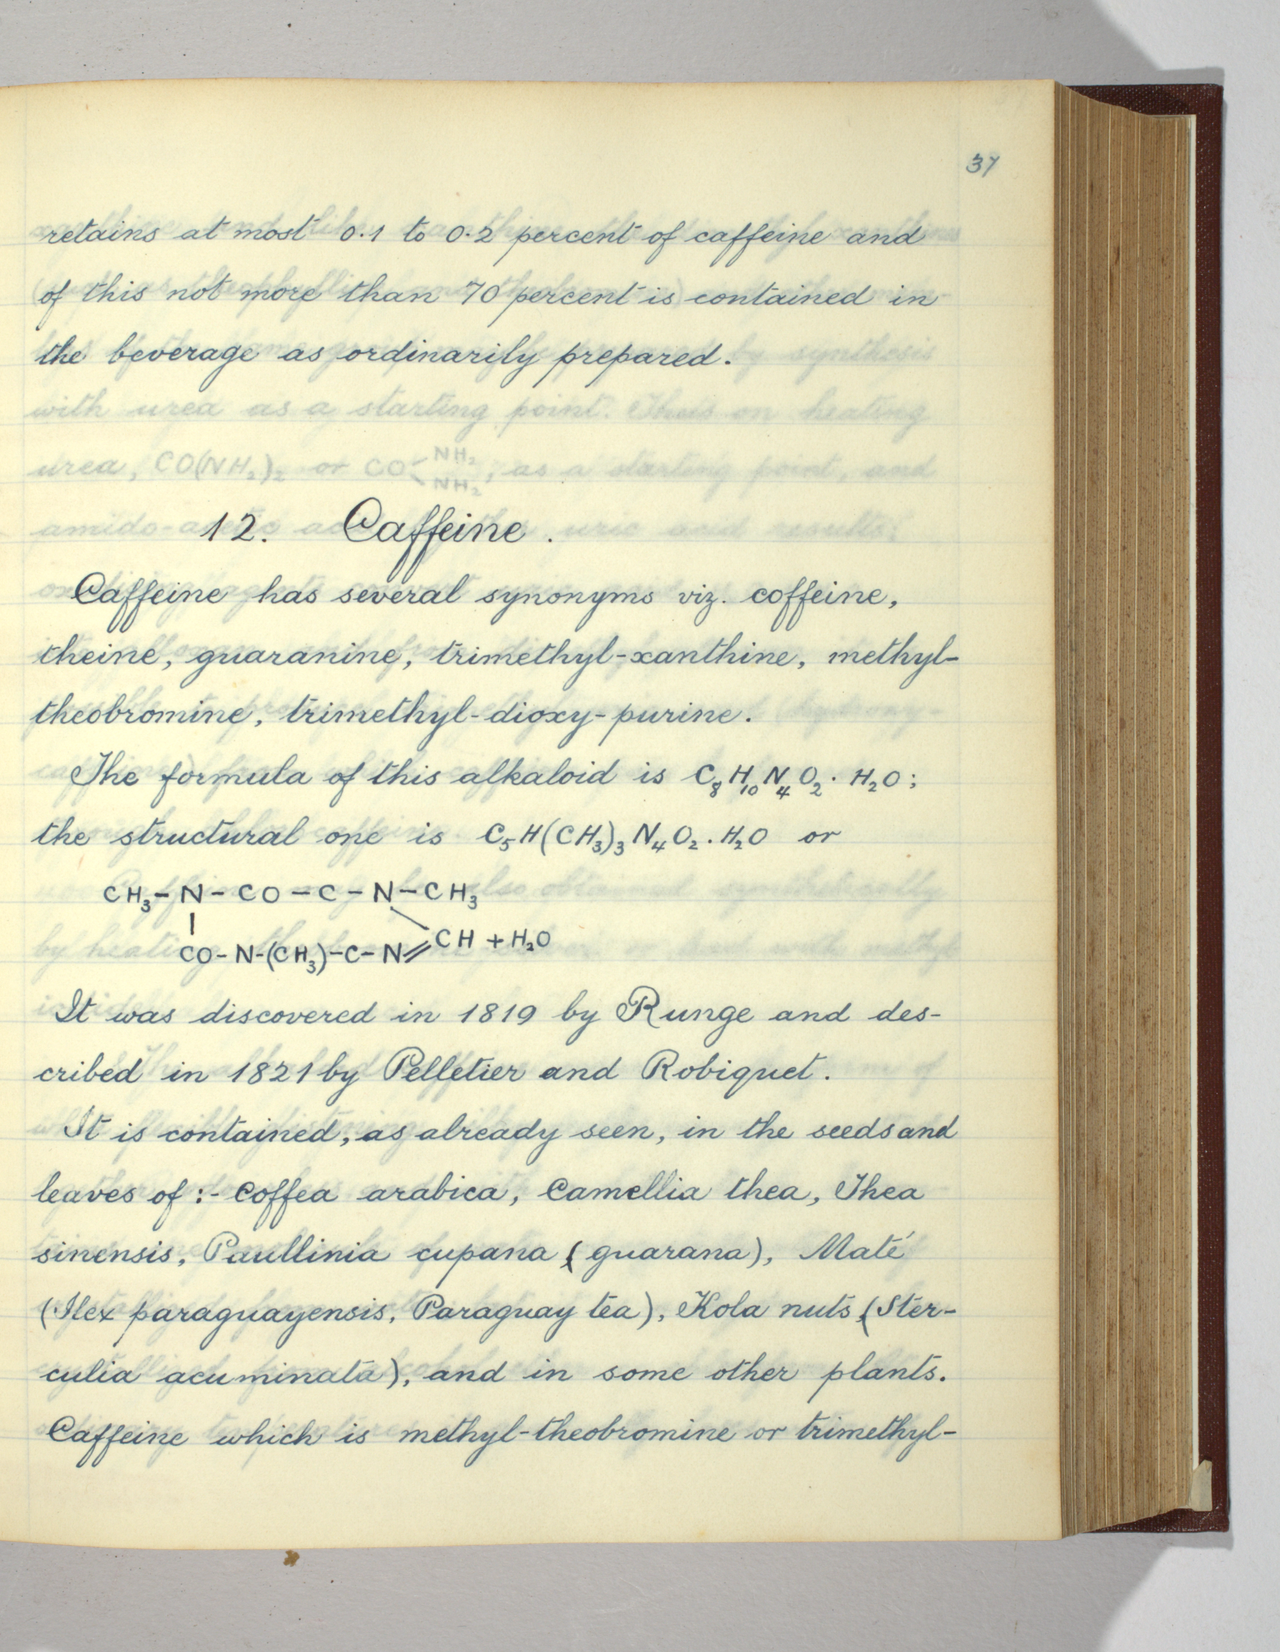 37
retains at most 0.1 to 0.2 percent of caffeine and
of this not more than 70 percent is contained in
the beverage as ordinarily prepared.
12. Caffeine.
Caffeine has several synonyms viz. coffeine,
theine, guaranine, trimethyl-xanthine, methyl-
theobromine, trimethyl-dioxy-purine.
The formula of this alkaloid is C₈H₁₀N₄O₂. H₂O;
the structural one is C₅H(CH₃)₃N₄O₂.H₂O or
CH₃-N-CO-C-N-CH₃
CO-N-(CH₃)-C-N=CH + H₂O
It was discovered in 1819 by Runge and des-
cribed in 1821 by Pelletier and Robiquet.
It is contained, as already seen, in the seeds and
leaves of :- Coffea arabica, Camellia thea, Thea
sinensis, Paullinia cupana (guarana), Maté
(Ilex paraguayensis, Paraguay tea), Kola nuts (Ster-
culia acuminata), and in some other plants.
Caffeine which is methyl-theobromine or trimethyl-